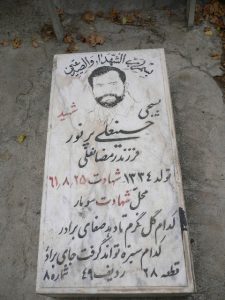 بسم رب الشهداء والصدیقین
شهید
بسیجی
حسینعلی پرنور
فرزند رمضانعلی
تولد ۱۳۳۴ شهادت ۶۱,۸,۲۵
محل شهادت سومار
کدام گل نگرم تا دهد صفای برادر
کدام سبزه تواند گرفت جای برادر
قطعه ۲۸ ردیف ۴۹ شماره ۸